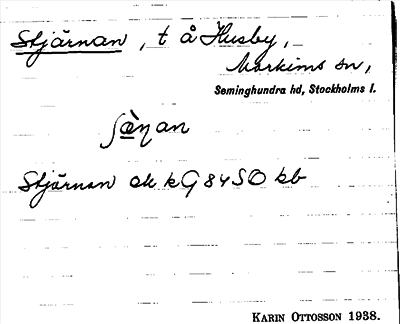 Stjärnan, t å Husby,
Markims sn,
Seminghundra hd, Stockholms l.
ʃæ̀ṇan
Stjärnan ek kG 84SO kb
KARIN OTTOSSON 1938.